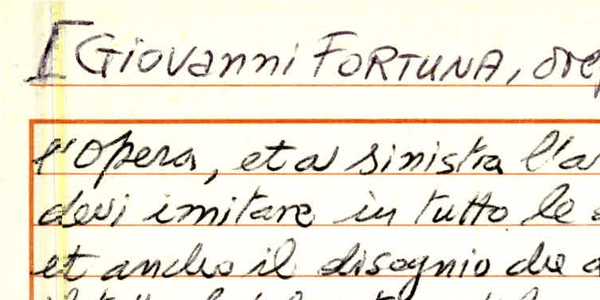 [Giovanni FORTUNA,
l'Opera, et a sinistra l'a
devi imitare in tutto le
et anche il disegnio che